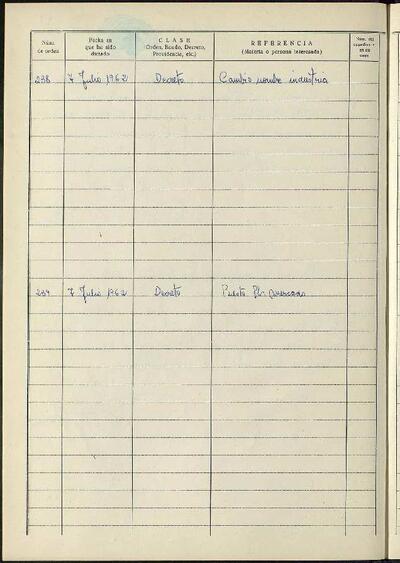 Núm. de orden
Fecha en que ha sido dictado
CLASE
(Orden, Bando, Decreto, Providencia, etc.)
REFERENCIA
(Materia o persona interesada)
Núm. del
238 7 Julio 1962 Decreto Cambio nombre industria
239 7 Julio 1962 Decreto Puesto Pl. Mercado